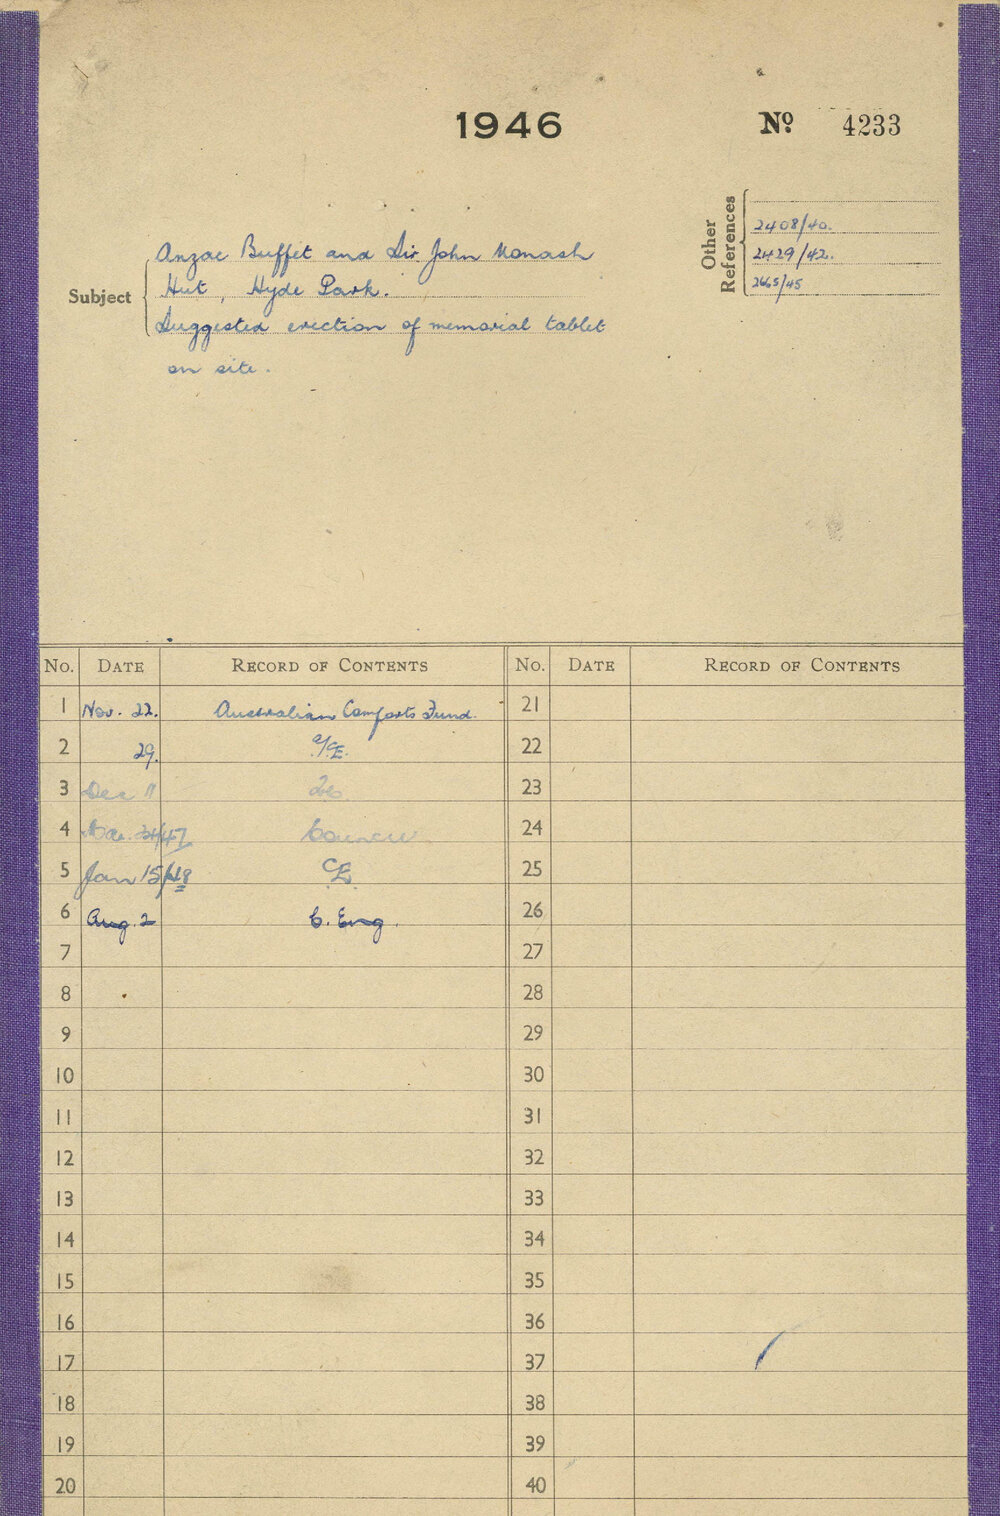 1946
Nº 4233
Other References
2408/40.
2429/42.
2665/45
Subject
Anzac Buffet and Sir John Monash
Hut, Hyde Park.
Suggested erection of memorial tablet
on site.
No. DATE RECORD OF CONTENTS No. DATE RECORD OF CONTENTS
1 Nov. 22. Australian Comforts Fund. 21
2 29. 22
3 Dec 11 23
4 24/47 Council 24
5 Jan 15/48 CE. 25
6 Aug. 2 C. Eng. 26
7 27
8 28
9 29
10 30
11 31
12 32
13 33
14 34
15 35
16 36
17 37
18 38
19 39
20 40